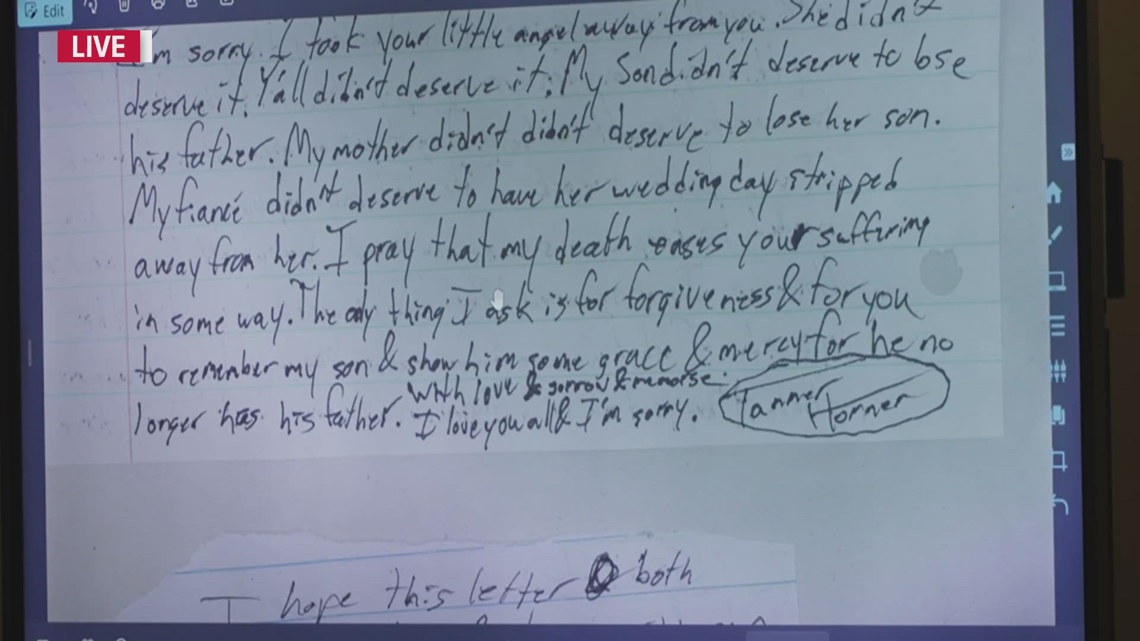 Edit
LIVE
I'm sorry. I took your little angel away from you. She didn't
deserve it. Y'all didn't deserve it. My Son didn't deserve to lose
his father. My mother didn't didn't deserve to lose her son.
My fiancé didn't deserve to have her wedding day stripped
away from her. I pray that my death eases your suffering
in some way. The only thing I ask is for forgiveness & for you
to remember my son & show him some grace & mercy for he no
with love & sorrow & remorse.
longer has his father. I love you all & I'm sorry. Tanner Horner
I hope this letter both